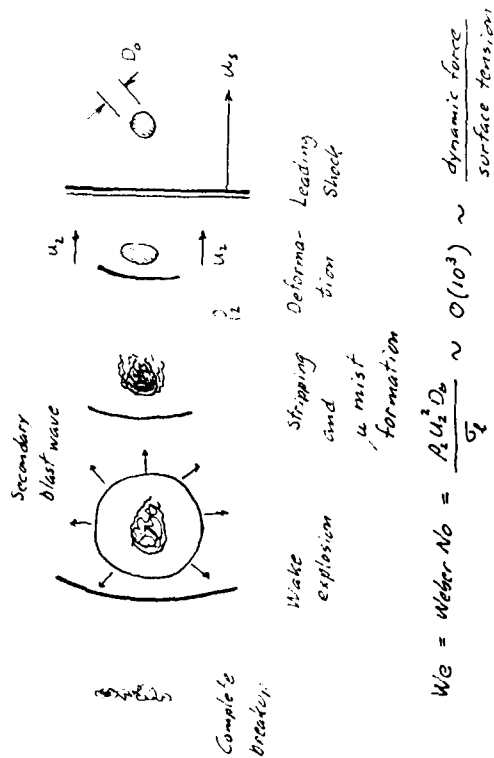 D₀
u₂
u₂
uₛ
Secondary
blast wave
Complete
breakup
Wake
explosion
Stripping
and
μ mist
formation
Deforma-
tion
Leading
Shock
We = Weber No = ρ₂u₂²D₀ / σₗ ~ O(10³) ~ dynamic force / surface tension